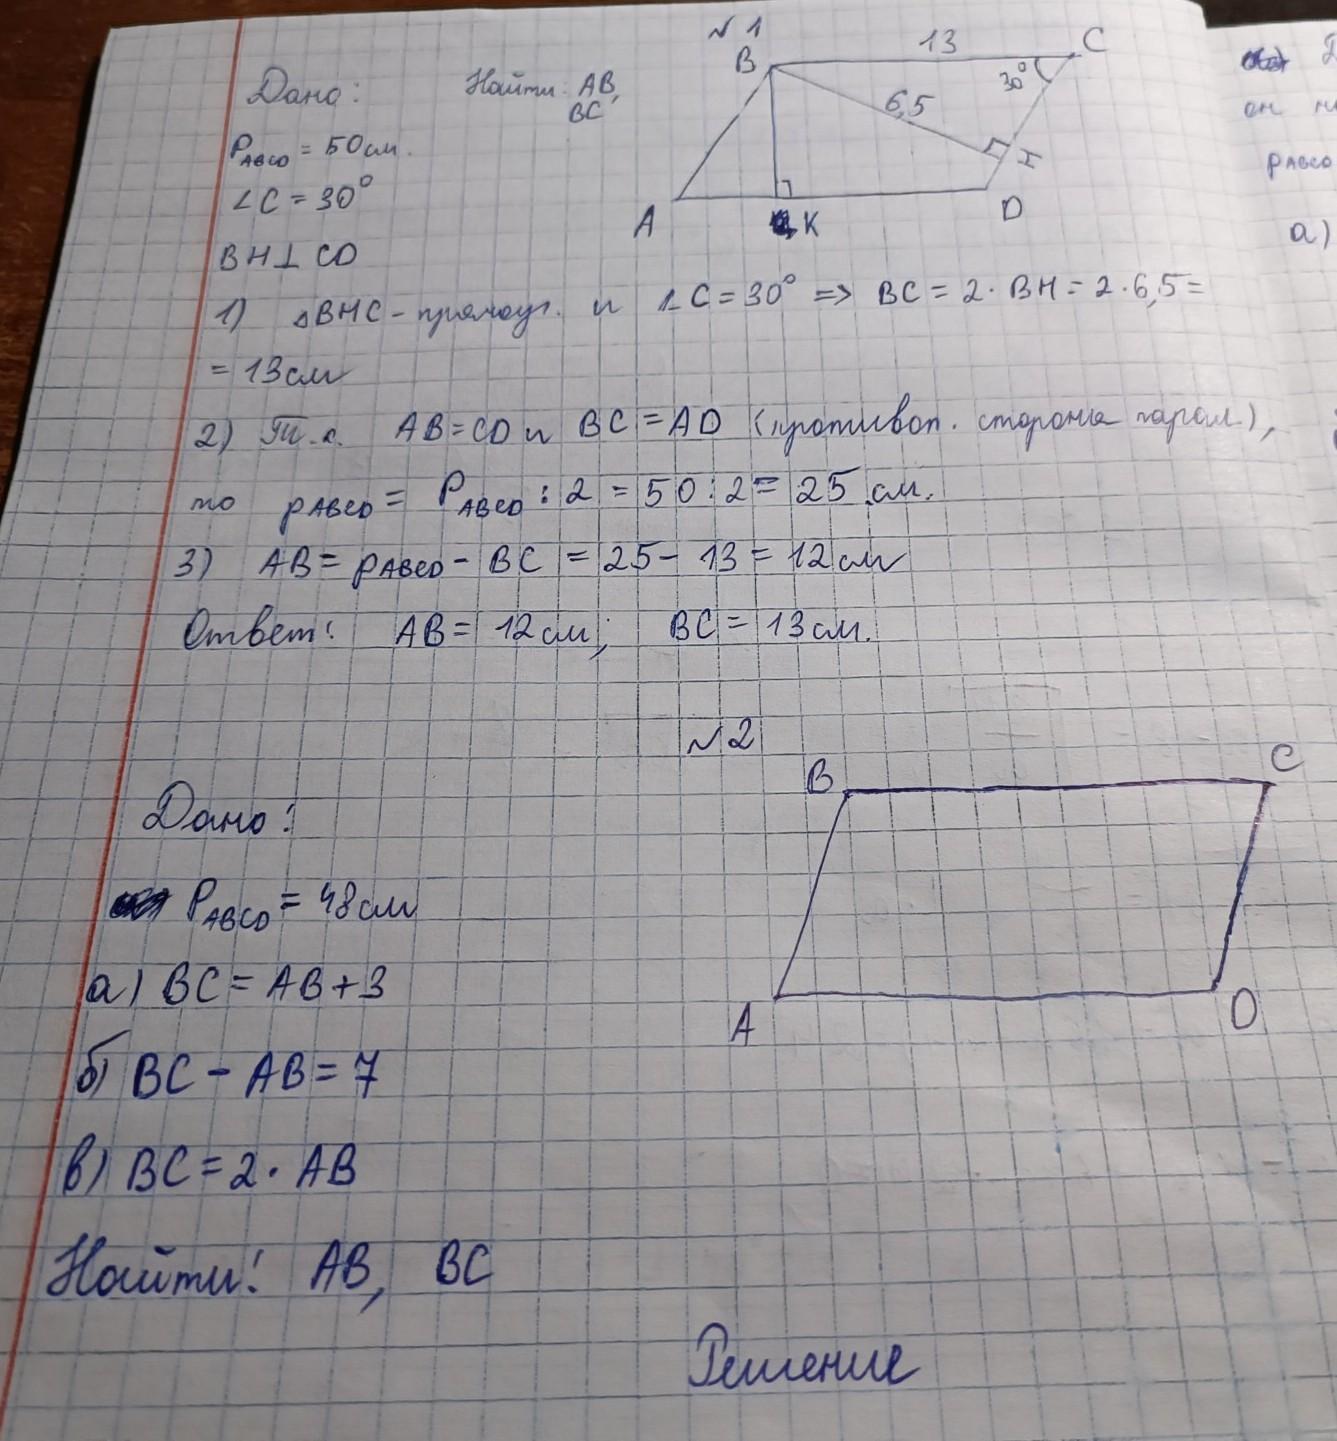 №1
Дано:
Найти: AB,
BC
B 13 C
30°
6,5
H
A K D
P ABCD = 50 см.
∠C = 30°
BH ⊥ CD
1) △BHC - прямоуг. и ∠C = 30° => BC = 2 · BH = 2 · 6,5 =
= 13 см
2) Т.к. AB = CD и BC = AD (противоп. стороны парал.),
то p ABCD = P ABCD : 2 = 50 : 2 = 25 см.
3) AB = p ABCD - BC = 25 - 13 = 12 см
Ответ: AB = 12 см; BC = 13 см.
№2
B C
A D
Дано:
P ABCD = 48 см
а) BC = AB + 3
б) BC - AB = 7
в) BC = 2 · AB
Найти: AB, BC
Решение
он
p ABCD
а)